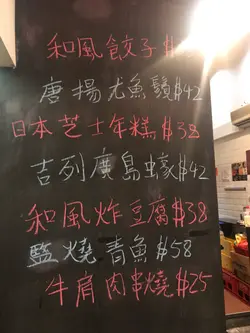 和風餃子$
唐揚尤魚鬚$42
日本芝士年糕$38
吉列廣島蠔$42
和風炸豆腐$38
盬燒青魚$58
牛肩肉串燒$25